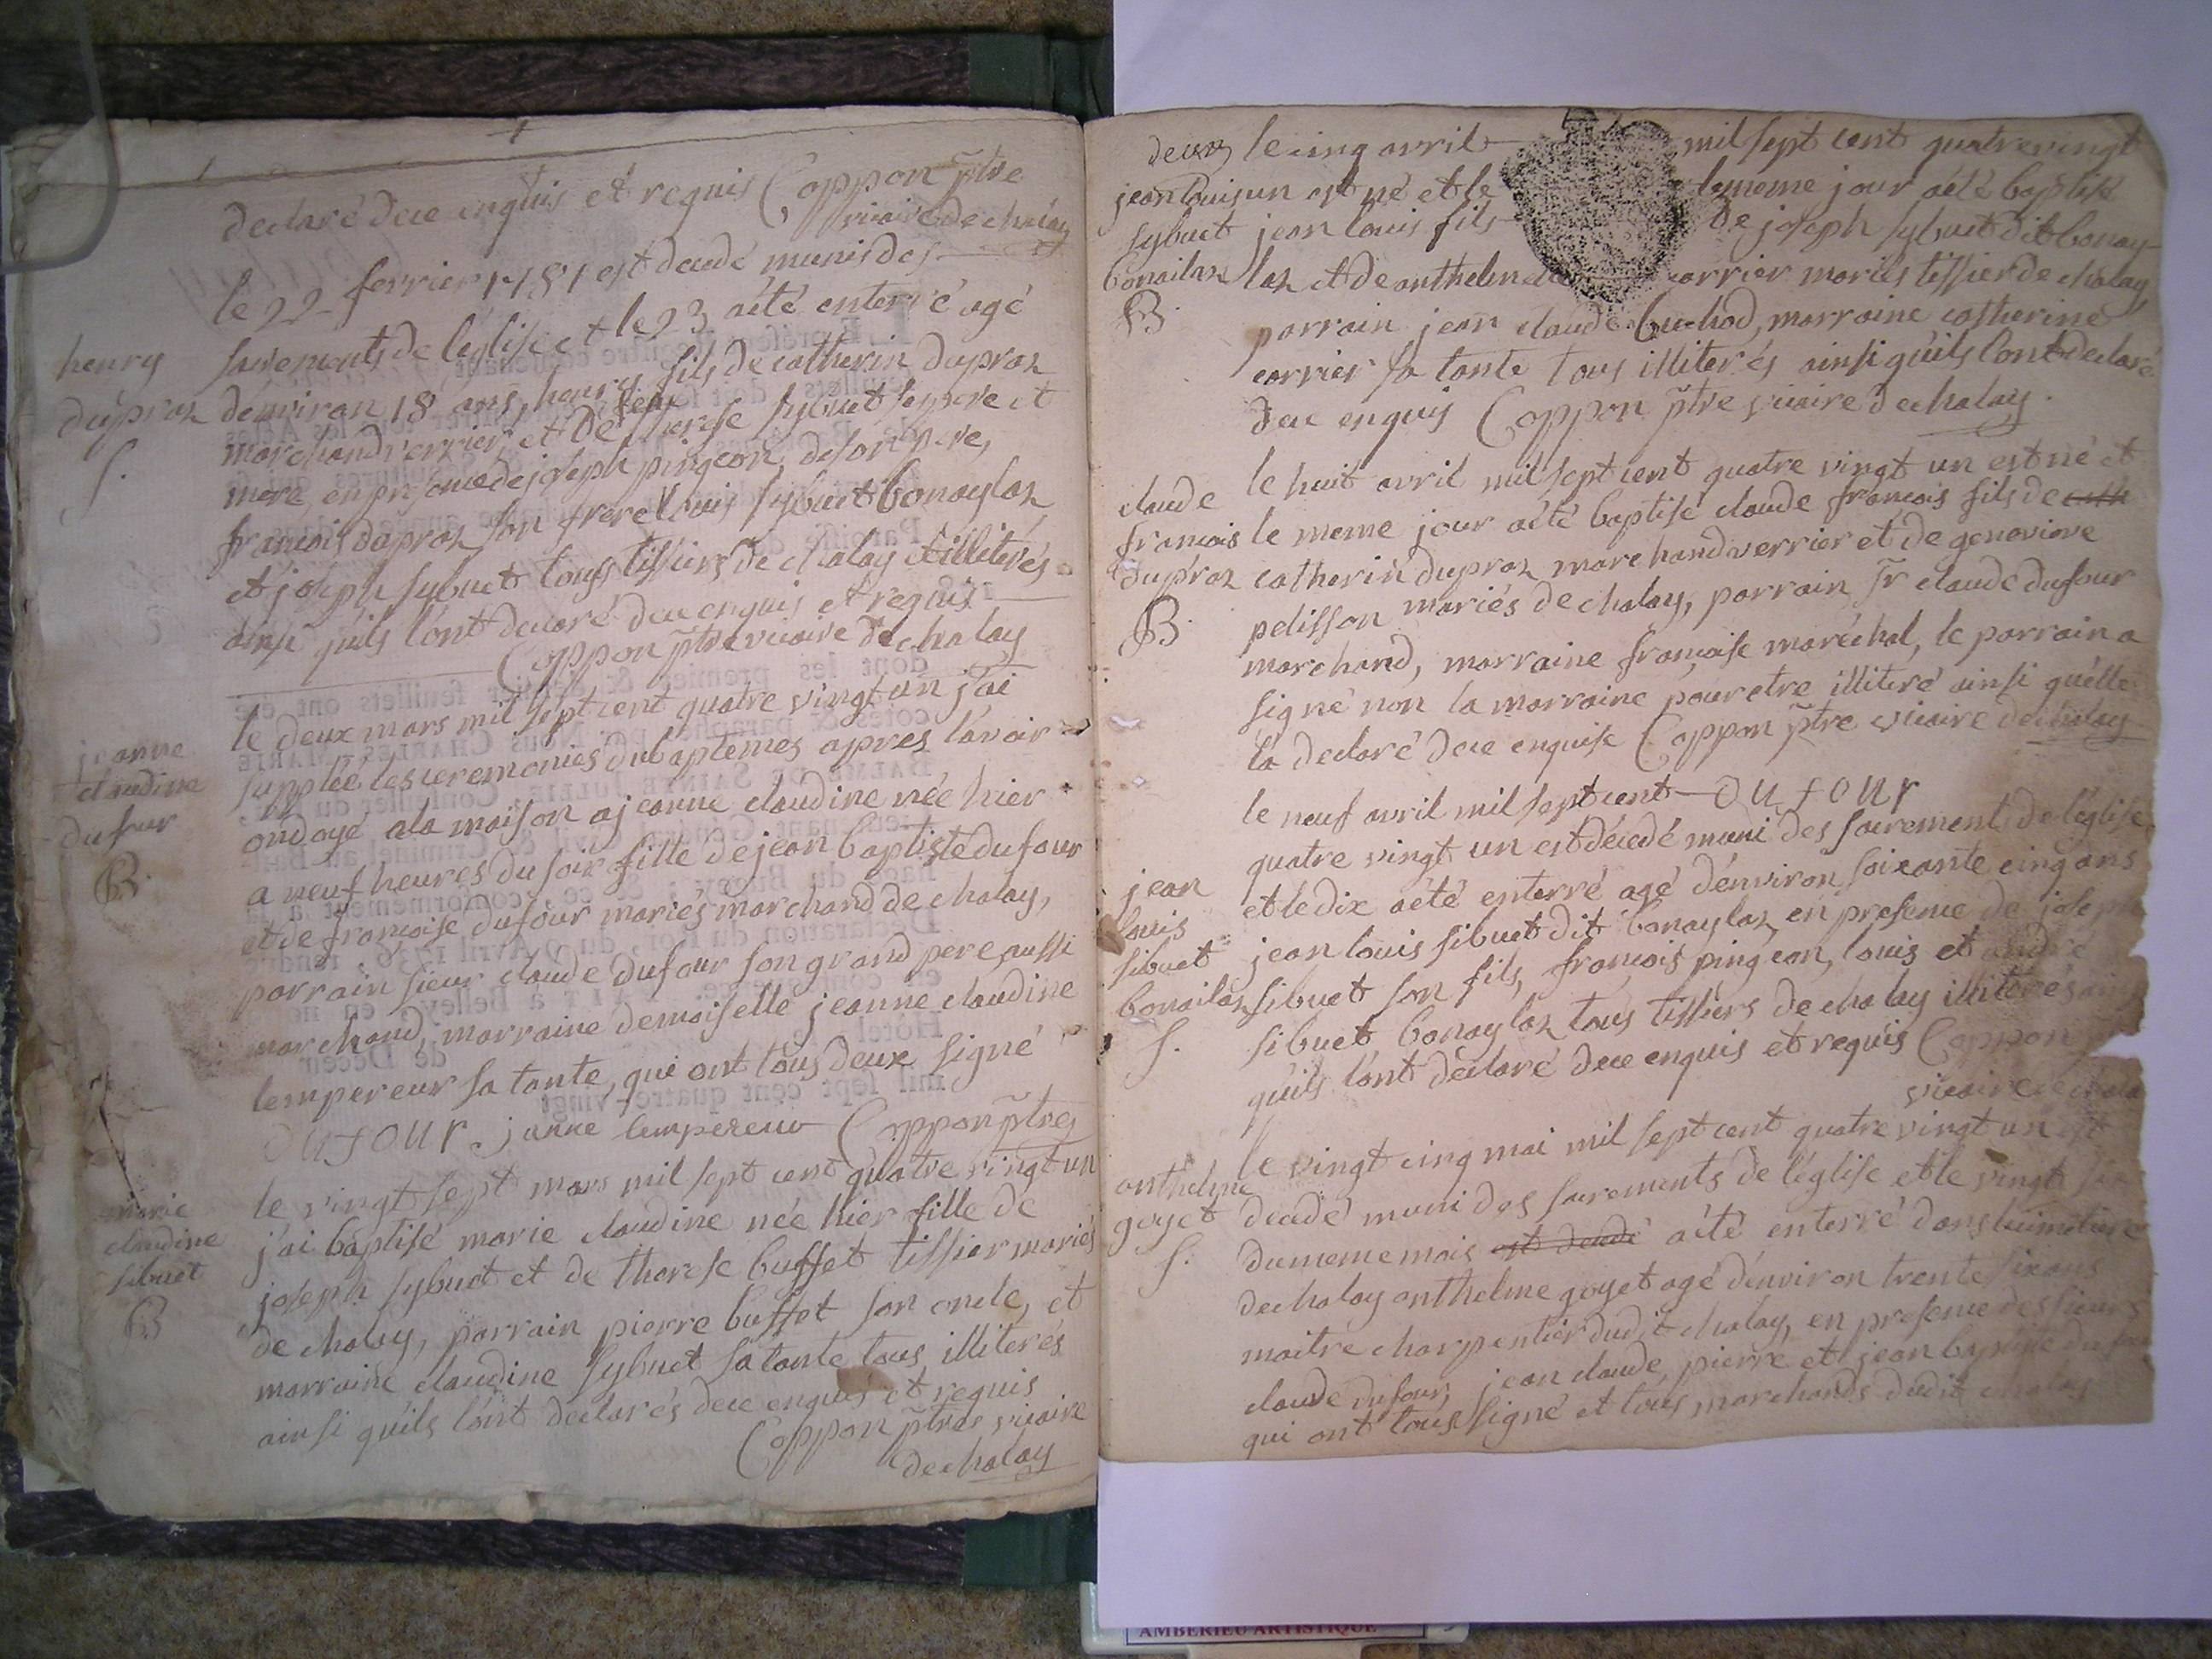 declaré de ce enquis et requis Coppon ptre
vicaire de chaley
le 22 fevrier 1781 est decedé munis des
henry
dupraz
S.
sacrements de l'église et le 23 a été enterré agé
d'environ 18 ans, henry fils de catherin dupraz
marchand verrier, et de feu therese sybuet ses pere et
mere, en presence de joseph pingeon, de son pere,
francois dupraz son frere louis sybuet bonaylaz
et joseph sybuet tous tissiers de chaley et illiterés
ainsi qu'ils l'ont declaré de ce enquis et requis
Coppon ptre vicaire de chaley
jeanne
claudine
dufour
B.
le deux mars mil sept cent quatre vingt un j'ai
supplée les ceremonies du baptemes apres l'avoir
ondoyé a la maison a jeanne claudine née hier
a neuf heures du soir fille de jean baptiste dufour
et de francoise dufour mariés marchand de chaley,
parrain sieur claude dufour son grand pere aussi
marchand, marraine demoiselle jeanne claudine
lempereur sa tante, qui ont tous deux signé
DUFOUR. janne lempereur Coppon ptre
marie
claudine
sibuet
B
le vingt sept mars mil sept cent quatre vingt un
j'ai baptisé marie claudine née hier fille de
joseph sybuet et de therese buffet tissier mariés
de chaley, parrain pierre buffet son oncle, et
marraine claudine sybuet sa tante tous illiterés
ainsi qu'ils l'ont declarés de ce enquis et requis
Coppon ptre vicaire
de chaley
deux
jean louis
sybuet
bonailaz
B.
le cinq avril mil sept cent quatre vingt
un est né et le le meme jour a été baptisé
jean louis fils de joseph sybuet dit bonay-
laz et de anthelmette carrier mariés tissier de chaley
parrain jean claude buchod, marraine catherine
carrier sa tante tous illiterés ainsi qu'ils l'ont declaré
de ce enquis Coppon ptre vicaire de chaley.
claude
francois
dupraz
B.
le huit avril mil sept cent quatre vingt un est né et
le meme jour a été baptisé claude francois fils de cath
catherin dupraz marchand verrier et de genevieve
pelisson mariés de chaley, parrain sr claude dufour
marchand, marraine francoise maréchal, le parrain a
signé non la marraine pour etre illiteré ainsi qu'elle
l'a declaré de ce enquise Coppon ptre vicaire de chaley
DUFOUR
jean
louis
sibuet
bonailaz
S.
le neuf avril mil sept cent
quatre vingt un est decedé muni des sacrements de l'église
et le dix a été enterré agé d'environ soixante cinq ans
jean louis sibuet dit bonaylaz, en presence de joseph
sibuet son fils, francois pingeon, louis et andré
sibuet bonaylaz tous tissiers de chaley illiterés ainsi
qu'ils l'ont declaré de ce enquis et requis Coppon
vicaire de chale
anthelme
goyet
S.
le vingt cinq mai mil sept cent quatre vingt un est
decedé muni des sacrements de l'église et le vingt six
du meme mois est decedé a été enterré dans le cimetiere
de chaley anthelme goyet agé d'environ trente six ans
maitre charpentier dudit chaley, en presence des sieurs
claude dufour, jean claude, pierre et jean baptiste dufour
qui ont tous signé et tous marchands dudit chaley
AMBERIEU ARTISTIQUE